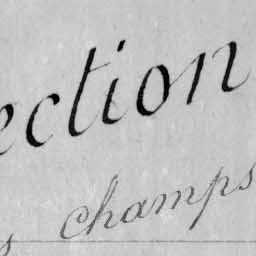 ection
s champs